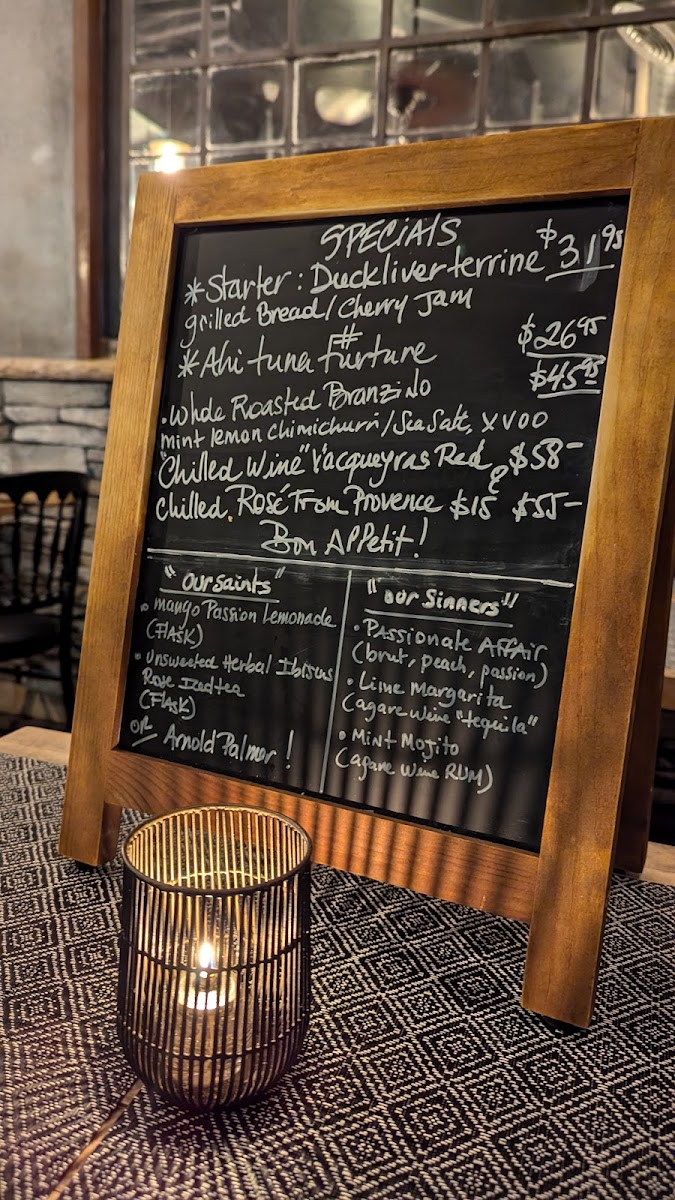 SPECIALS
*Starter: Duckliver terrine $31 95
grilled Bread/Cherry Jam
#
*Ahi tuna Furture $26 95
$45 95
• Whole Roasted Branzino
mint lemon chimichurri/Sea Salt, XVOO
"Chilled Wine" Vacqueyras Red, $58-
&
Chilled, Rosé From Provence $15 $55-
Bon Appetit!
"Our Saints"
• mango Passion Lemonade
(Flask)
• Unsweeted Herbal Ibiscus
Rose Iced tea
(Flask)
or Arnold Palmer!
"our Sinners"
• Passionate Affair
(brut, peach, passion)
• Lime Margarita
(agave Wine "tequila"
• Mint Mojito
(agave Wine RUM)